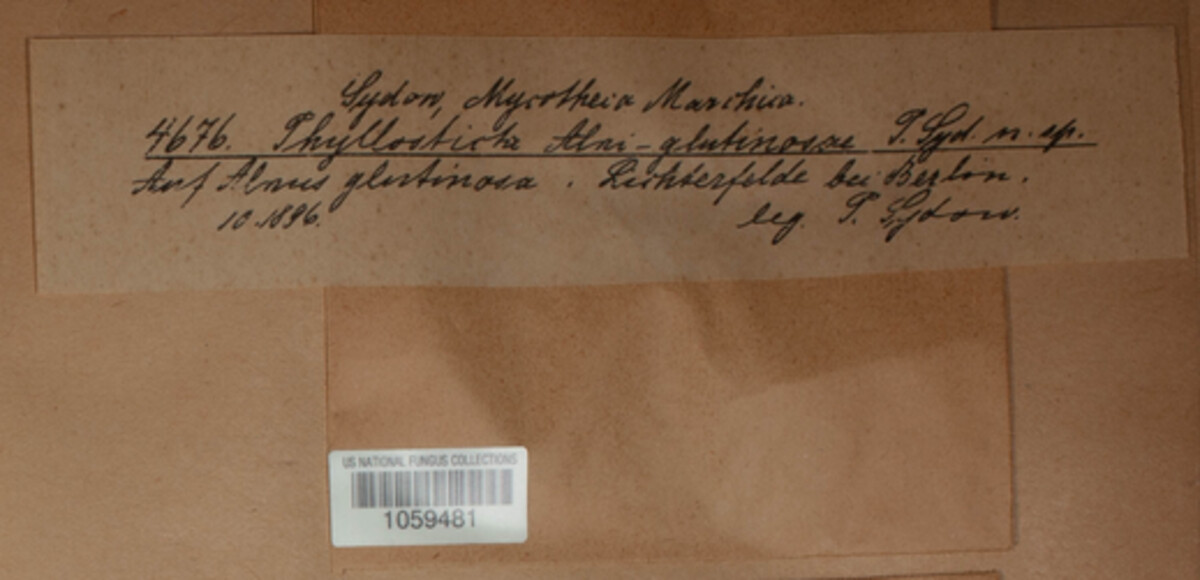 Sydow, Mycotheca Marchica.
4676. Phyllosticta Alni-glutinosae P. Syd. n. sp.
Auf Alnus glutinosa. Lichterfelde bei Berlin.
10.1896. leg. P. Sydow.
US NATIONAL FUNGUS COLLECTIONS
1059481